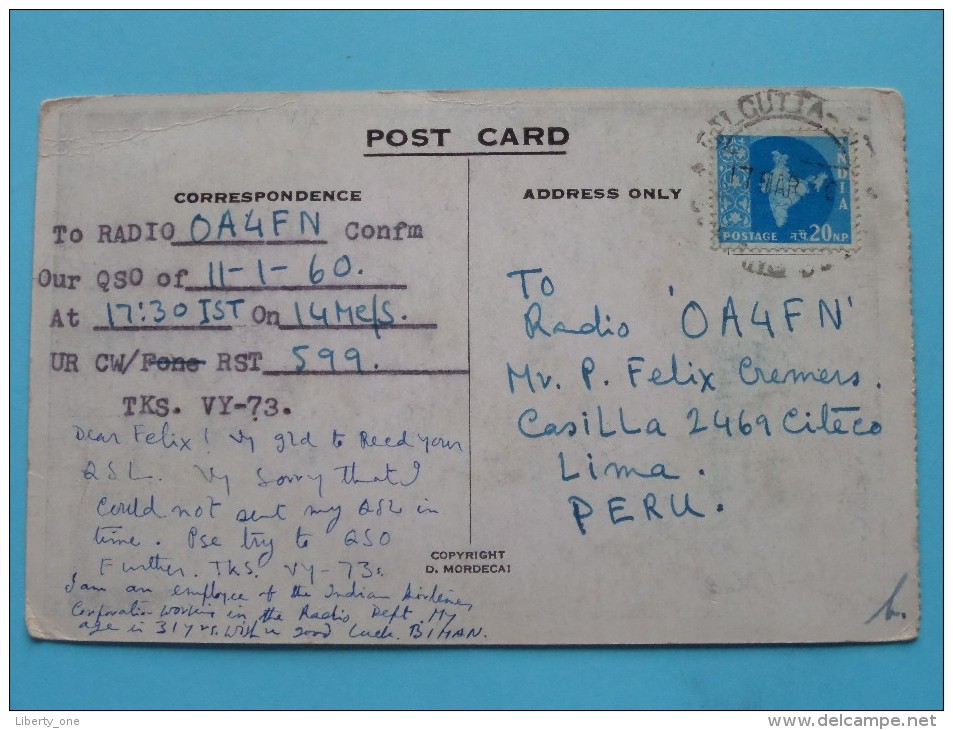 POST CARD
CORRESPONDENCE
To RADIO OA4FN Confm
Our QSO of 11-1-60.
At 17:30 IST On 14Mc/s.
UR CW/Fone RST 599.
TKS. VY-73.
Dear Felix! Vy gld to Recd your
QSL. Vy Sorry that I
Could not sent my QSL in
time. Pse try to QSO
Further. TKS. VY-73s
I am an employee of the Indian Airlines
Corporation working in the Radio Dept. My
age is 31 yrs. Wish u good luck. BIMAN.
ADDRESS ONLY
CALCUTTA
17 MAR
INDIA
POSTAGE न.पै. 20 N.P.
TO
Radio 'OA4FN'
Mr. P. Felix Cremers.
Casilla 2469 Citeco
Lima.
PERU.
COPYRIGHT
D. MORDECAI
Liberty_one
delcampe.net